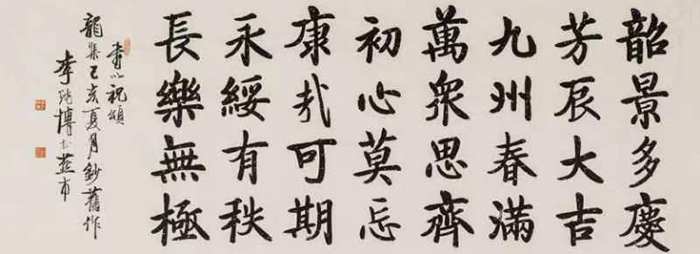 韶景多慶
芳辰大吉
九州春滿
萬衆思齊
初心莫忘
康哉可期
永綏有秩
長樂無極
書以祝頌
龍集己亥夏月鈔舊作
李 博 燕市